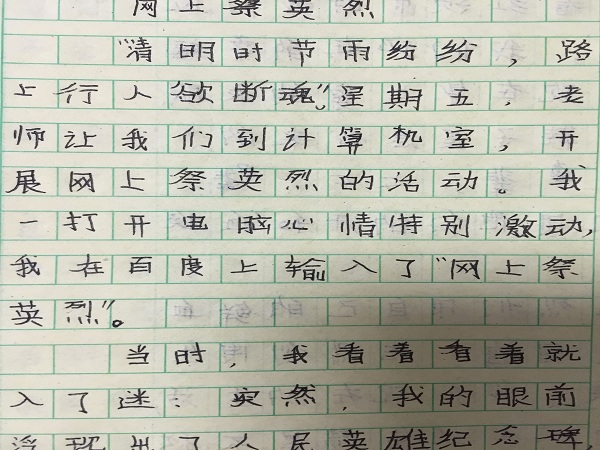 网上祭英烈
“清明时节雨纷纷，路
上行人欲断魂”。星期五，老
师让我们到计算机室，开
展网上祭英烈的活动。我
一打开电脑心情特别激动，
我在百度上输入了“网上祭
英烈”。
当时，我看着看着就
入了迷．突然，我的眼前
浮现出了人民英雄纪念碑，